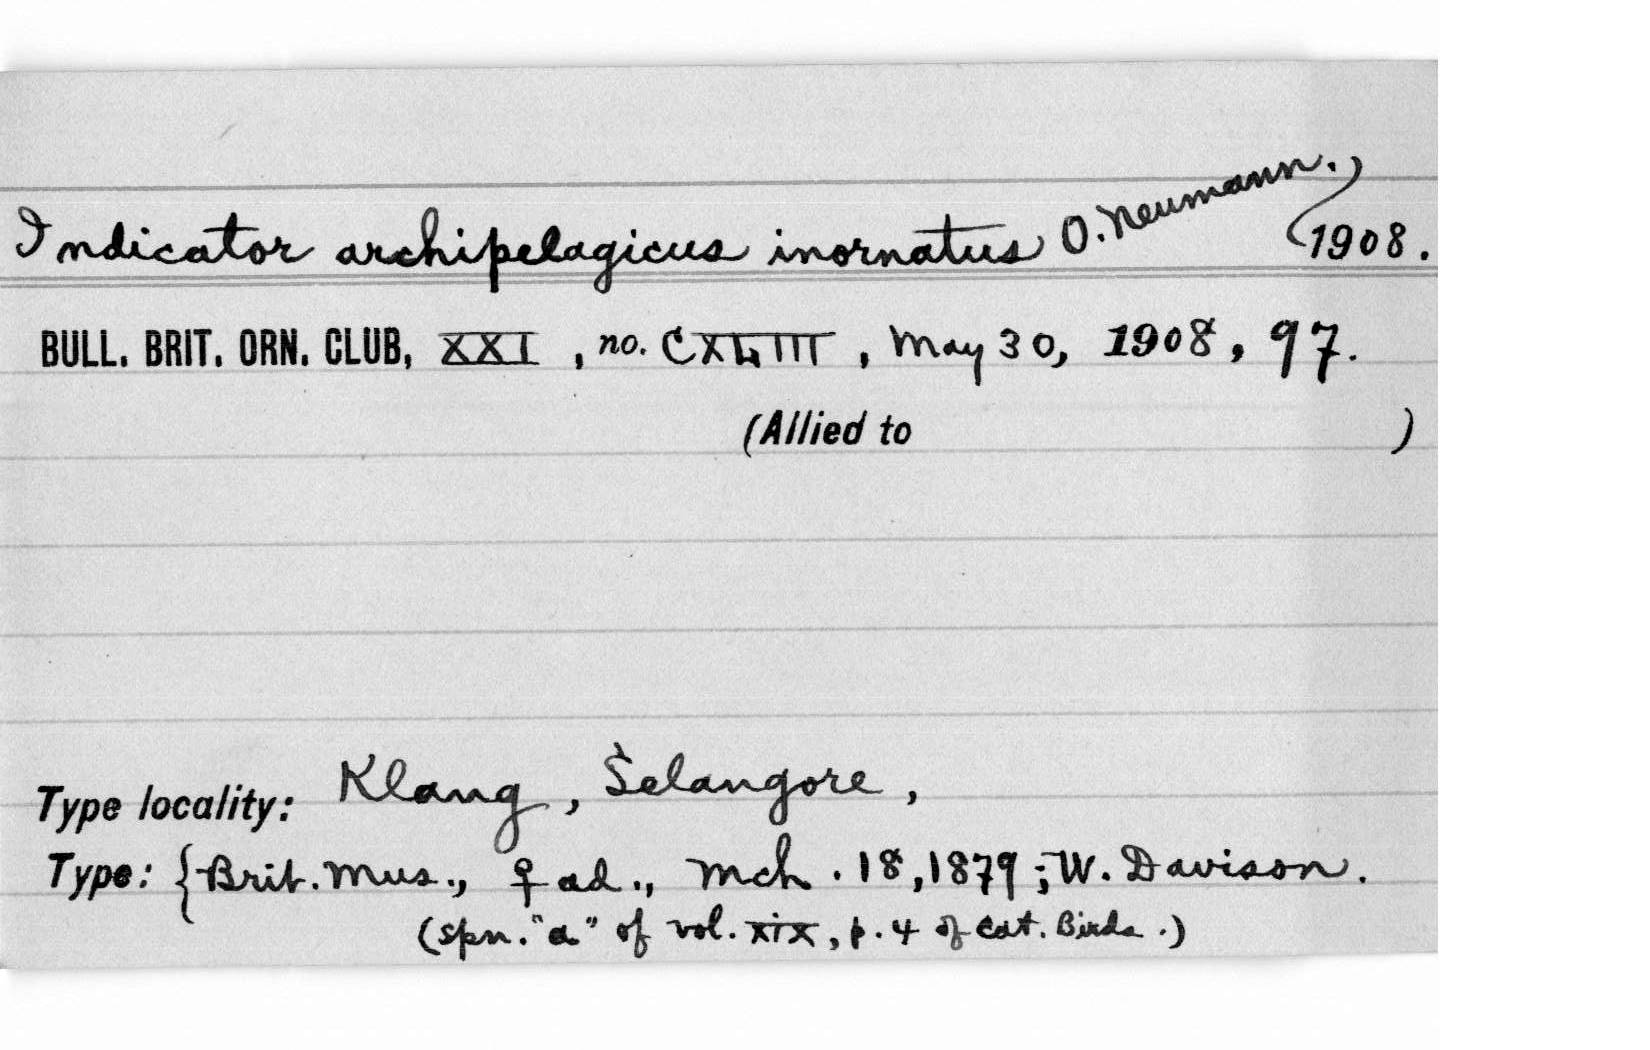 Indicator archipelagicus inornatus O. Neumann., 1908.
BULL. BRIT. ORN. CLUB, XXI, no. CXLIII, May 30, 1908, 97.
(Allied to )
Type locality: Klang, Selangore,
Type: {Brit. Mus., ♀ ad., Mch. 18, 1879; W. Davison.
(spn. "a" of vol. xix, p. 4 of Cat. Birds.)